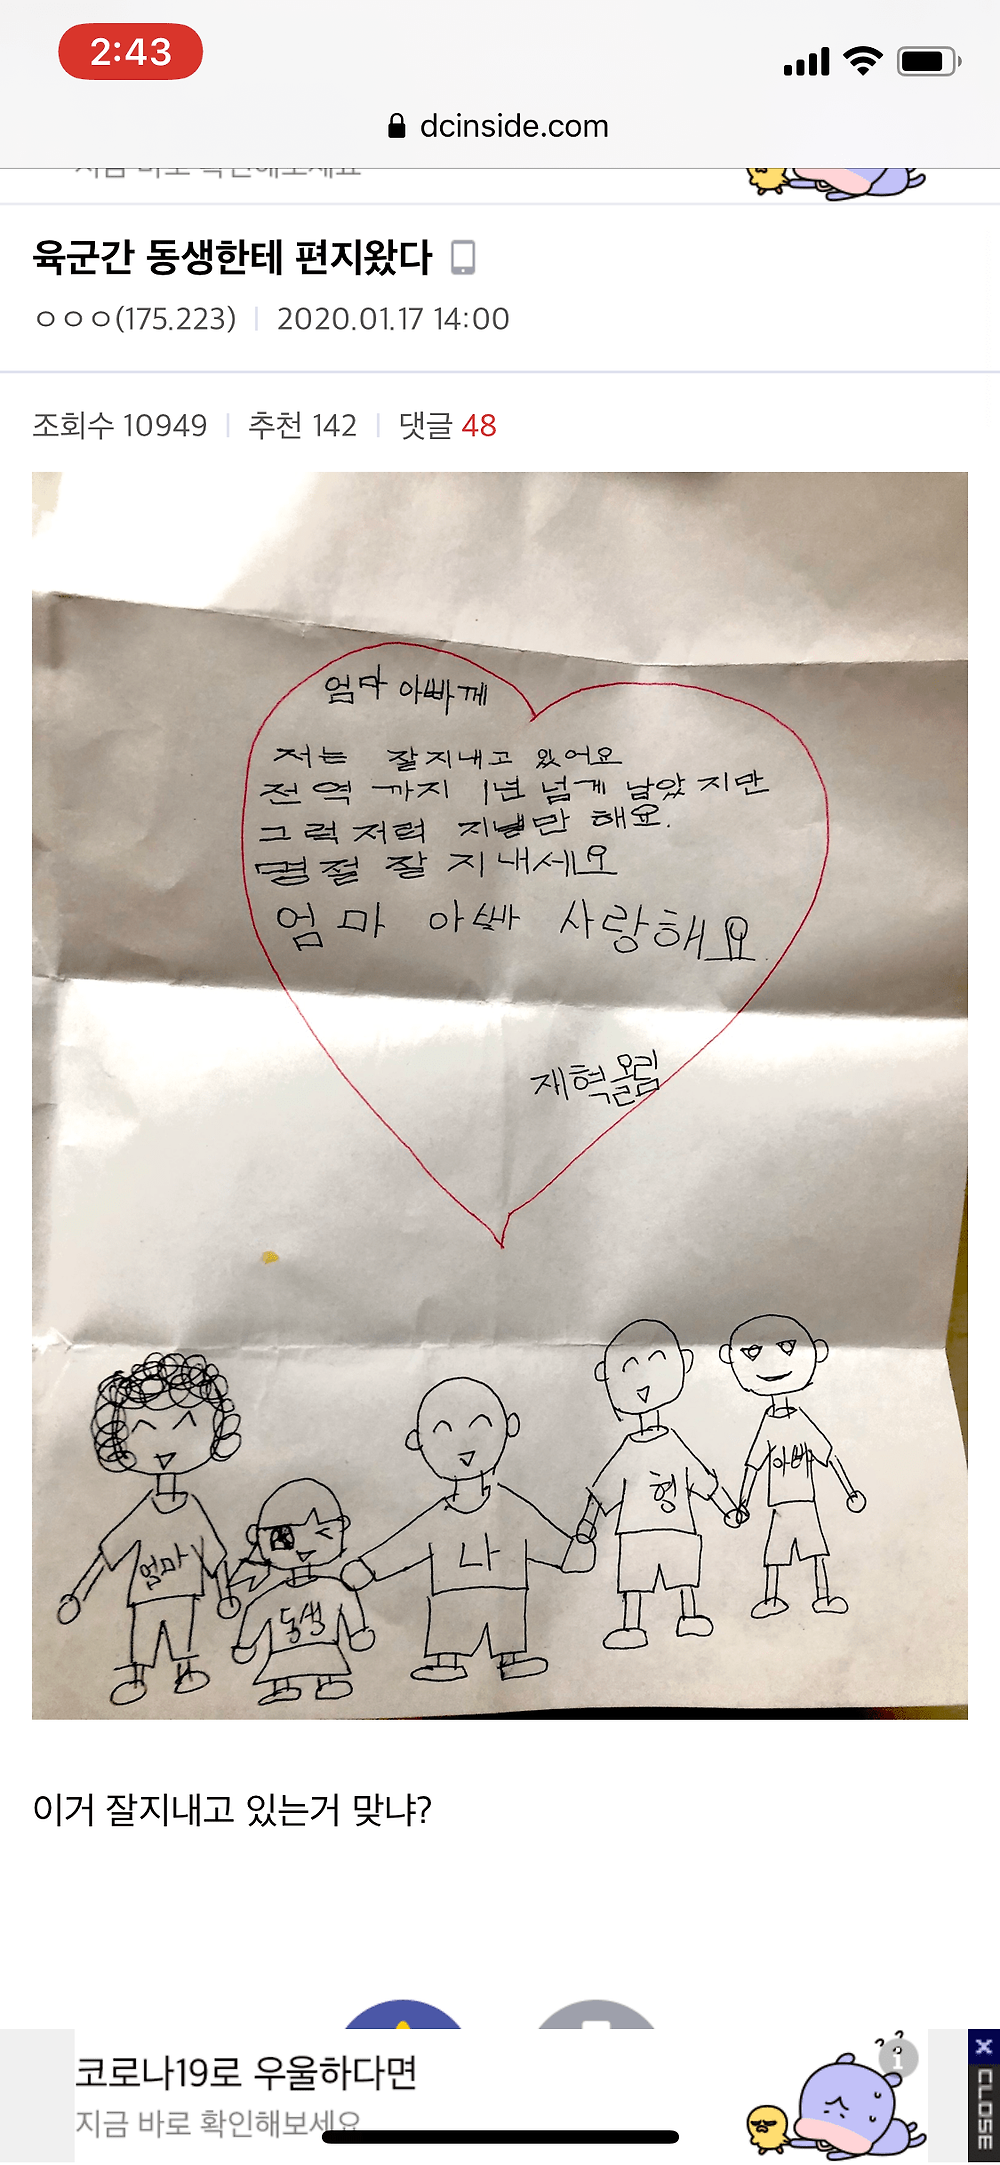 2:43
dcinside.com
지금 바로 확인해보세요
육군간 동생한테 편지왔다
ㅇㅇㅇ(175.223) | 2020.01.17 14:00
조회수 10949 | 추천 142 | 댓글 48
엄마 아빠께
저는 잘지내고 있어요
전역 까지 1년 넘게 남았지만
그럭저럭 지낼만 해요.
명절 잘 지내세요
엄마 아빠 사랑해요.
재혁올림
엄마
동생
나
형
아빠
이거 잘지내고 있는거 맞냐?
코로나19로 우울하다면
지금 바로 확인해보세요
CLOSE